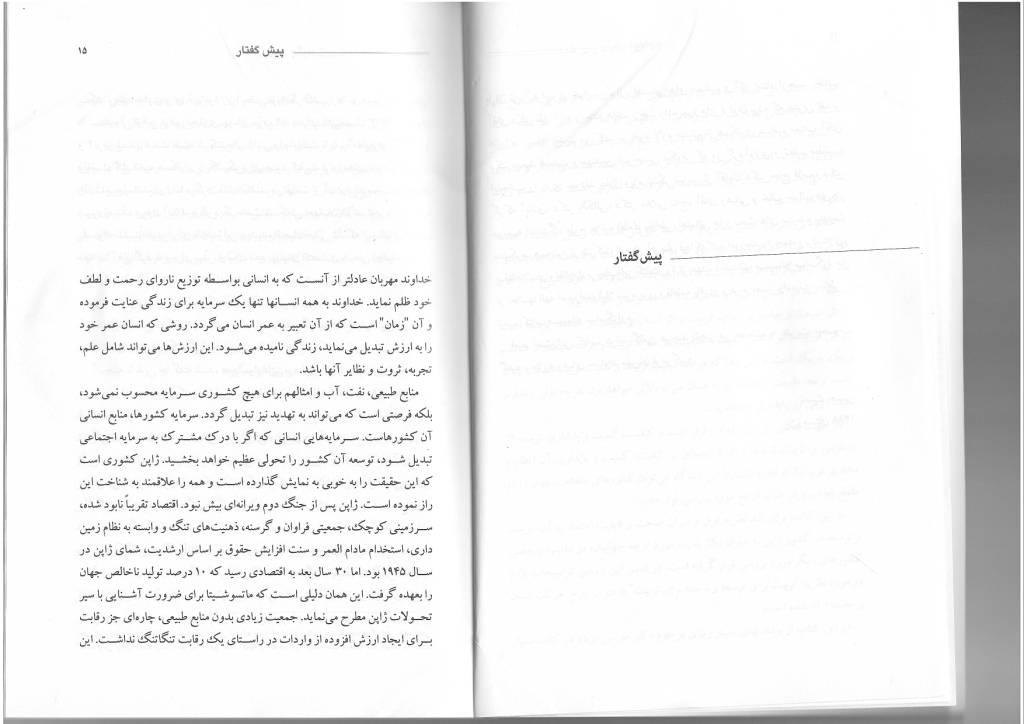 پیش‌گفتار
پیش گفتار
۱۵
خداوند مهربان عادلتر از آنست که به انسانی بواسطه توزیع ناروای رحمت و لطف
خود ظلم نماید. خداوند به همه انسانها تنها یک سرمایه برای زندگی عنایت فرموده
و آن "زمان" است که از آن تعبیر به عمر انسان می‌گردد. روشی که انسان عمر خود
را به ارزش تبدیل می‌نماید، زندگی نامیده می‌شود. این ارزش‌ها می‌تواند شامل علم،
تجربه، ثروت و نظایر آنها باشد.
منابع طبیعی، نفت، آب و امثالهم برای هیچ کشوری سرمایه محسوب نمی‌شود،
بلکه فرصتی است که می‌تواند به تهدید نیز تبدیل گردد. سرمایه کشورها، منابع انسانی
آن کشورهاست. سرمایه‌هایی انسانی که اگر با درک مشترک به سرمایه اجتماعی
تبدیل شود، توسعه آن کشور را تحولی عظیم خواهد بخشید. ژاپن کشوری است
که این حقیقت را به خوبی به نمایش گذارده است و همه را علاقمند به شناخت این
راز نموده است. ژاپن پس از جنگ دوم ویرانه‌ای بیش نبود. اقتصاد تقریباً نابود شده،
سرزمینی کوچک، جمعیتی فراوان و گرسنه، ذهنیت‌های تنگ و وابسته به نظام زمین
داری، استخدام مادام العمر و سنت افزایش حقوق بر اساس ارشدیت، شمای ژاپن در
سال ۱۹۴۵ بود. اما ۳۰ سال بعد به اقتصادی رسید که ۱۰ درصد تولید ناخالص جهان
را بعهده گرفت. این همان دلیلی است که ماتسوشیتا برای ضرورت آشنایی با سیر
تحولات ژاپن مطرح می‌نماید. جمعیت زیادی بدون منابع طبیعی، چاره‌ای جز رقابت
برای ایجاد ارزش افزوده از واردات در راستای یک رقابت تنگاتنگ نداشت. این